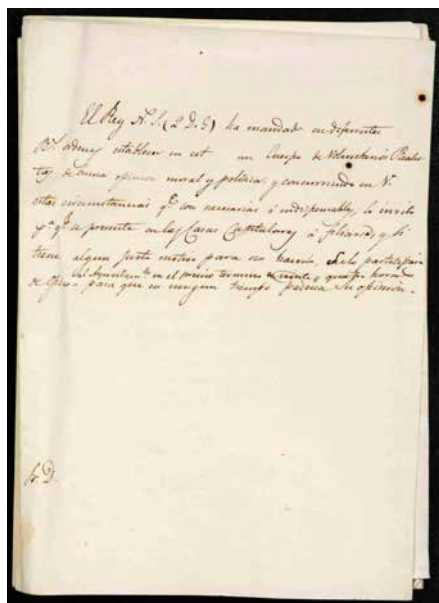 El Rey N. S. (Q. D. G) ha mandado en diferentes
Rs. ordenes establecer en est un Cuerpo de Voluntarios Realis
tas de buena opinion moral y politica, y concurriendo en V.
estas circunstancias qe. son necesarias é indispensables, le invito
pa. qe. se presente en las Casas Capitulares á filiarse, y si
tiene algun justo motivo para no hacerlo, se lo participará
al Ayuntamto. en el preciso termino de veinte y quatro horas
de oficio para que en ningun tiempo padezca su opinion.
Sr. D.